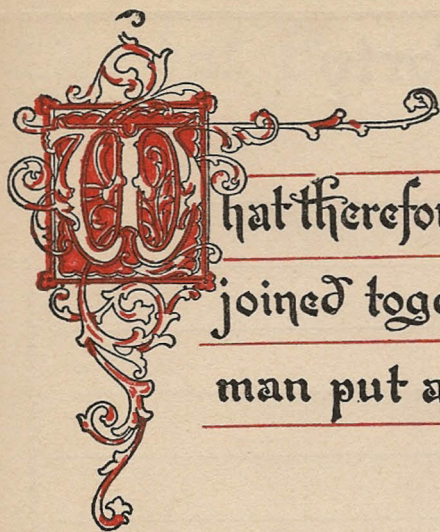 What therefor
joined toge
man put a